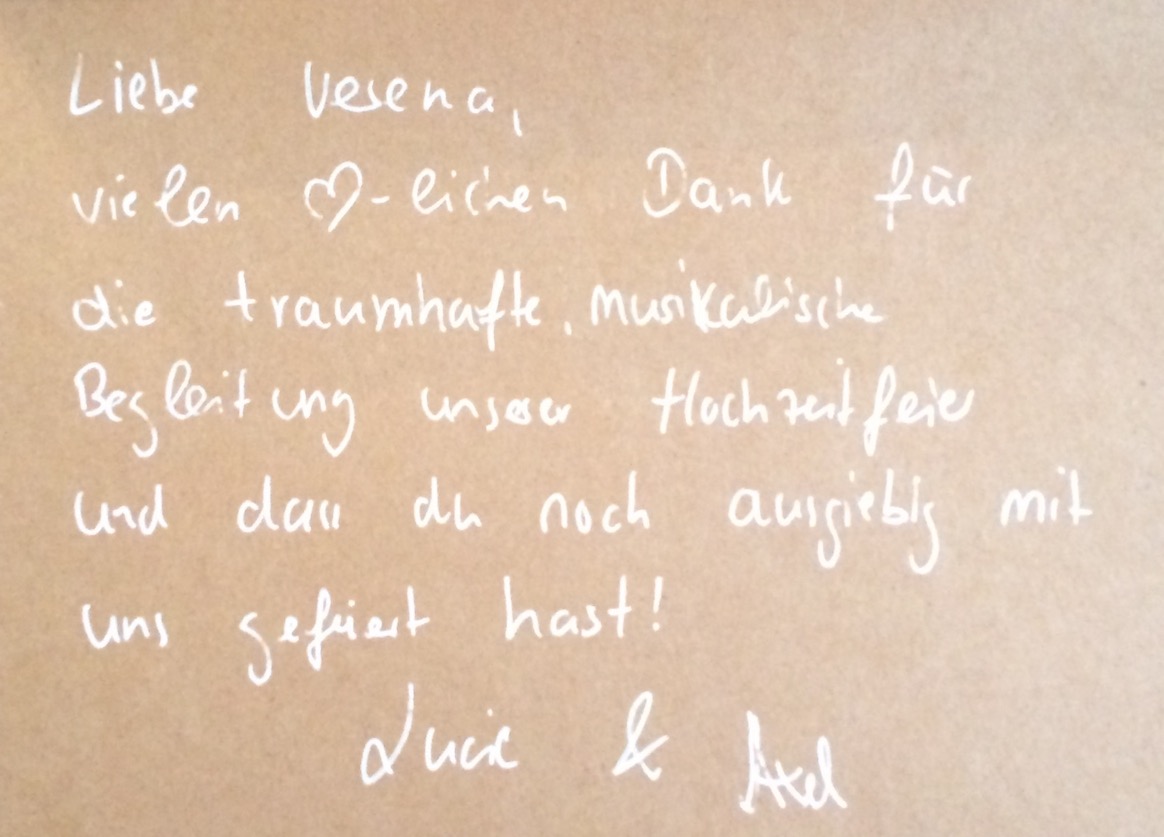 Liebe Vesena,
vielen ♡-lichen Dank für
die traumhafte, musikalische
Begleitung unserer Hochzeitfeier
und dass du noch ausgiebig mit
uns gefeiert hast!
Lucie & Axel